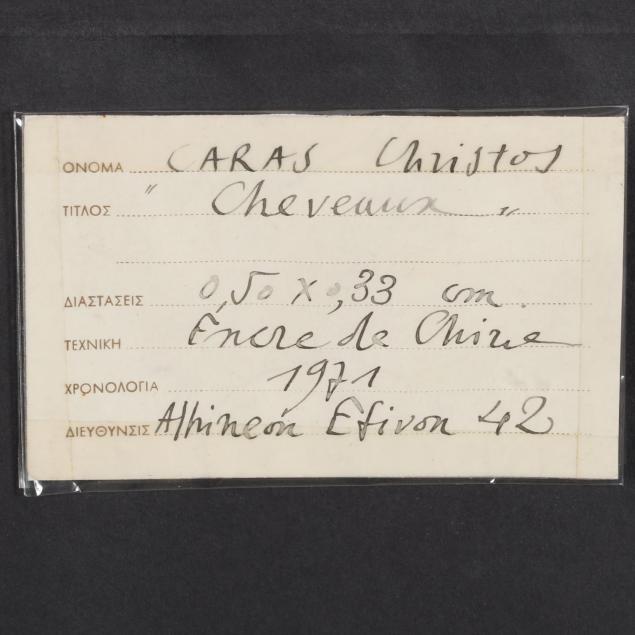 ΟΝΟΜΑ CARAS Christos
ΤΙΤΛΟΣ " Cheveaux "
ΔΙΑΣΤΑΣΕΙΣ 0,50 x 0,33 cm.
ΤΕΧΝΙΚΗ Encre de Chine
ΧΡΟΝΟΛΟΓΙΑ 1971
ΔΙΕΥΘΥΝΣΙΣ 42